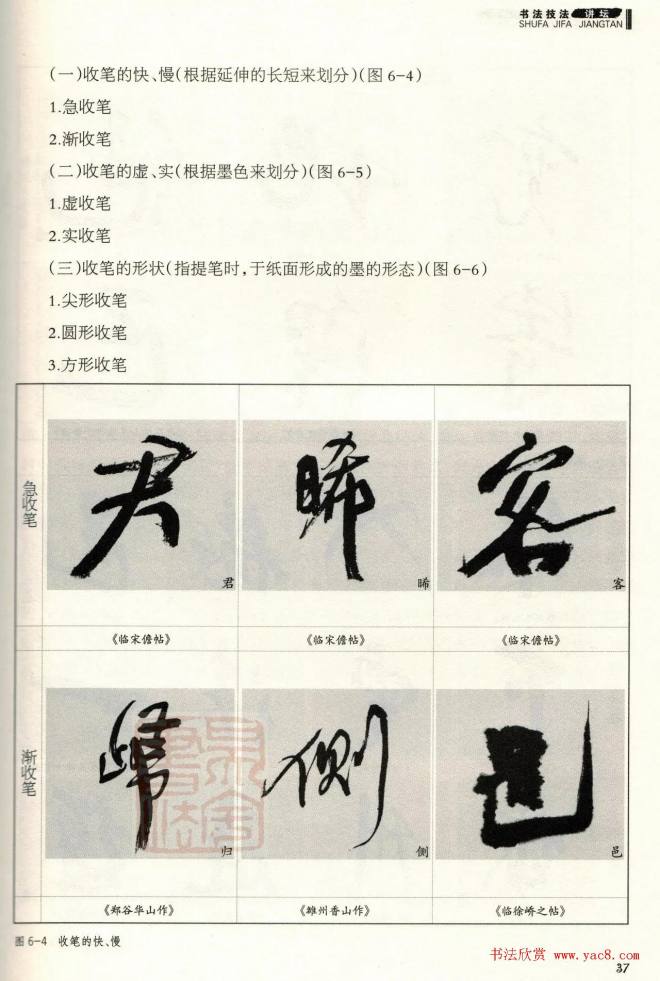 书法技法 讲坛
SHUFA JIFA JIANGTAN
(一)收笔的快、慢(根据延伸的长短来划分)(图6-4)
1.急收笔
2.渐收笔
(二)收笔的虚、实(根据墨色来划分)(图6-5)
1.虚收笔
2.实收笔
(三)收笔的形状(指提笔时,于纸面形成的墨的形态)(图6-6)
1.尖形收笔
2.圆形收笔
3.方形收笔
急收笔
君 晞 客
君 晞 客
《临宋儋帖》 《临宋儋帖》 《临宋儋帖》
渐收笔
歸 側 邑
归 侧 邑
《郑谷华山作》 《雒州香山作》 《临徐峤之帖》
图6-4 收笔的快、慢
书法欣赏 www.yac8.com
37